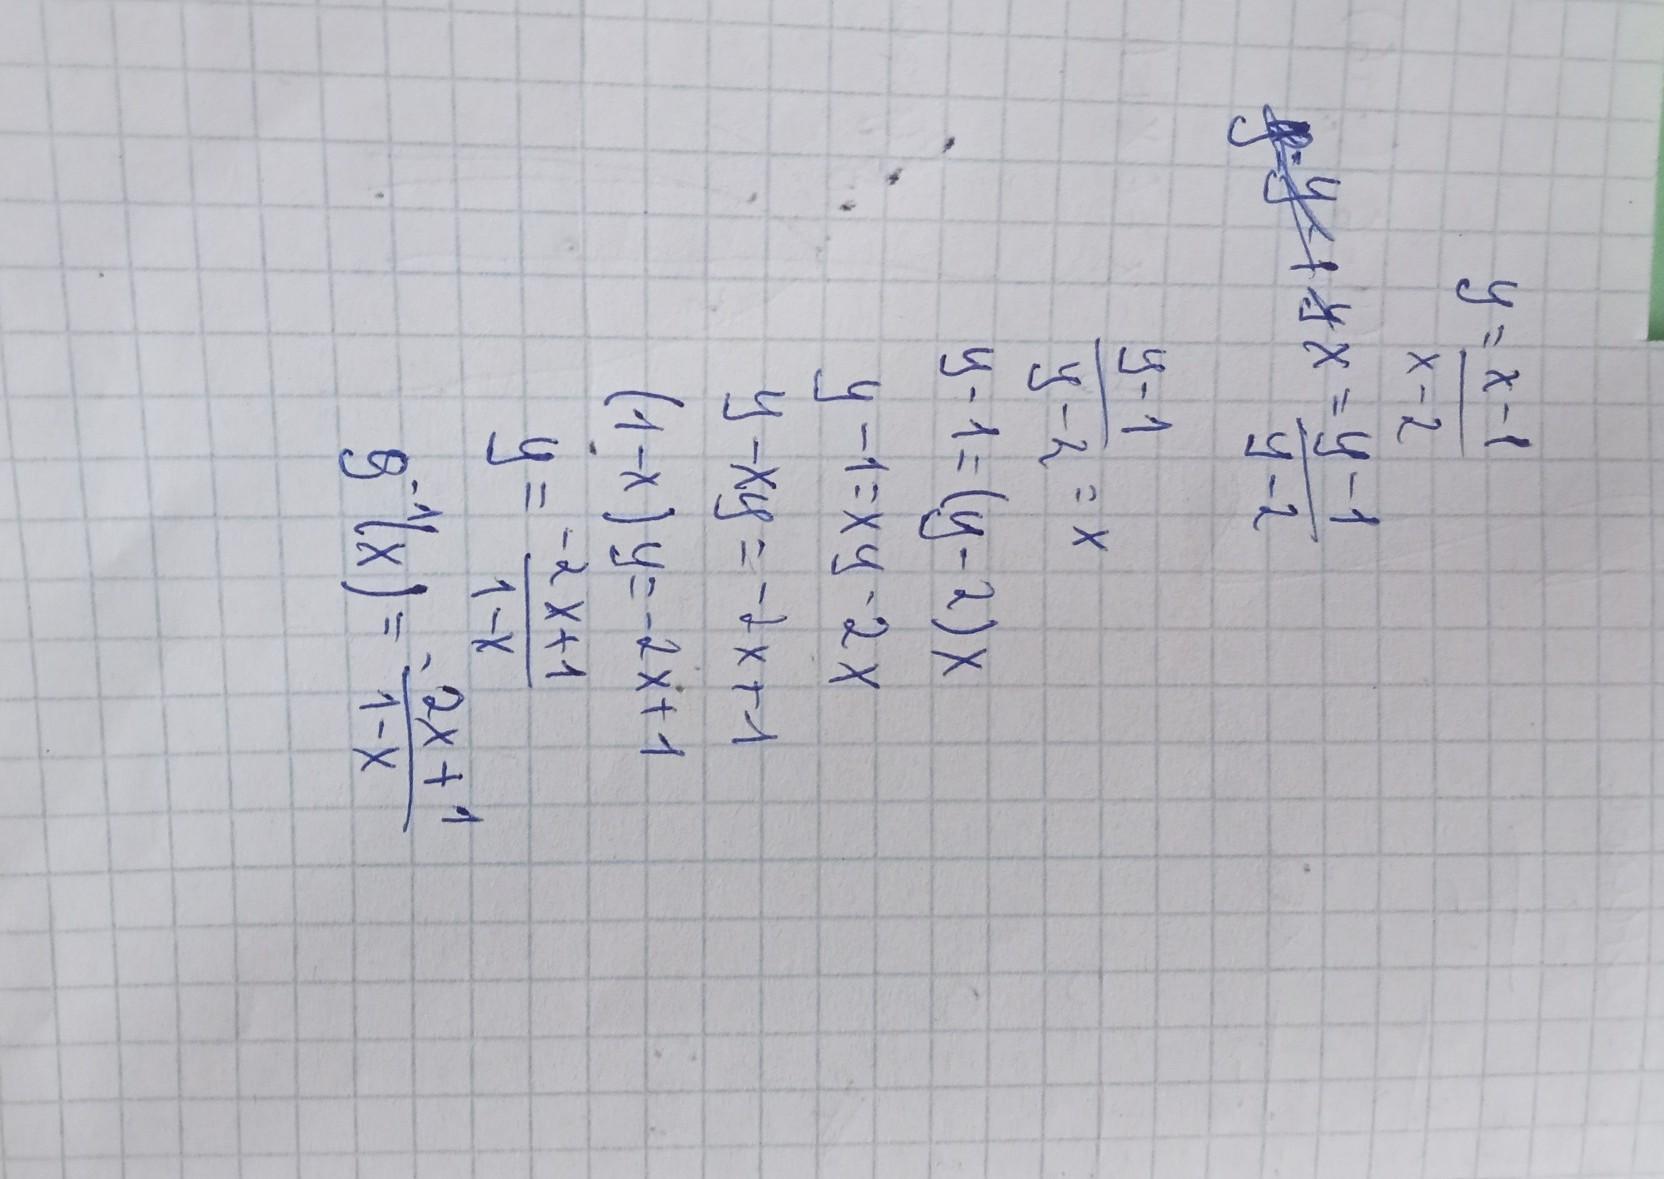 y = \frac{x-1}{x-2}
x = \frac{y-1}{y-2}
\frac{y-1}{y-2} = x
y-1=(y-2)x
y-1=xy-2x
y-xy=-2x+1
(1-x)y=-2x+1
y = \frac{-2x+1}{1-x}
g^{-1}(x) = \frac{-2x+1}{1-x}